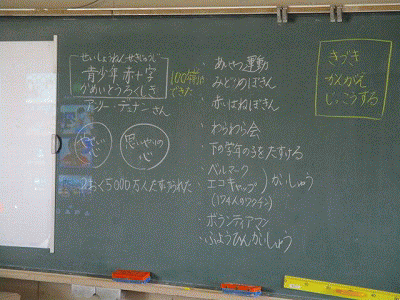 せいしょうねんせきじゅうじ
青少年赤十字
かめいとうろくしき
100年前に
できた
アンリー・デュナンさん
やさしい
心
思いやりの
心
2おく5000万人たすけられた
・あいさつ運動
・みどりのぼきん
・赤いはねぼきん
・わらわら会
・下の学年の子をたすける
・ベルマーク
・エコキャップ
(174人のワクチン)
かいしゅう
・ボランティアマン
・ふようひんかいしょう
きづき
かんがえ
じっこうする